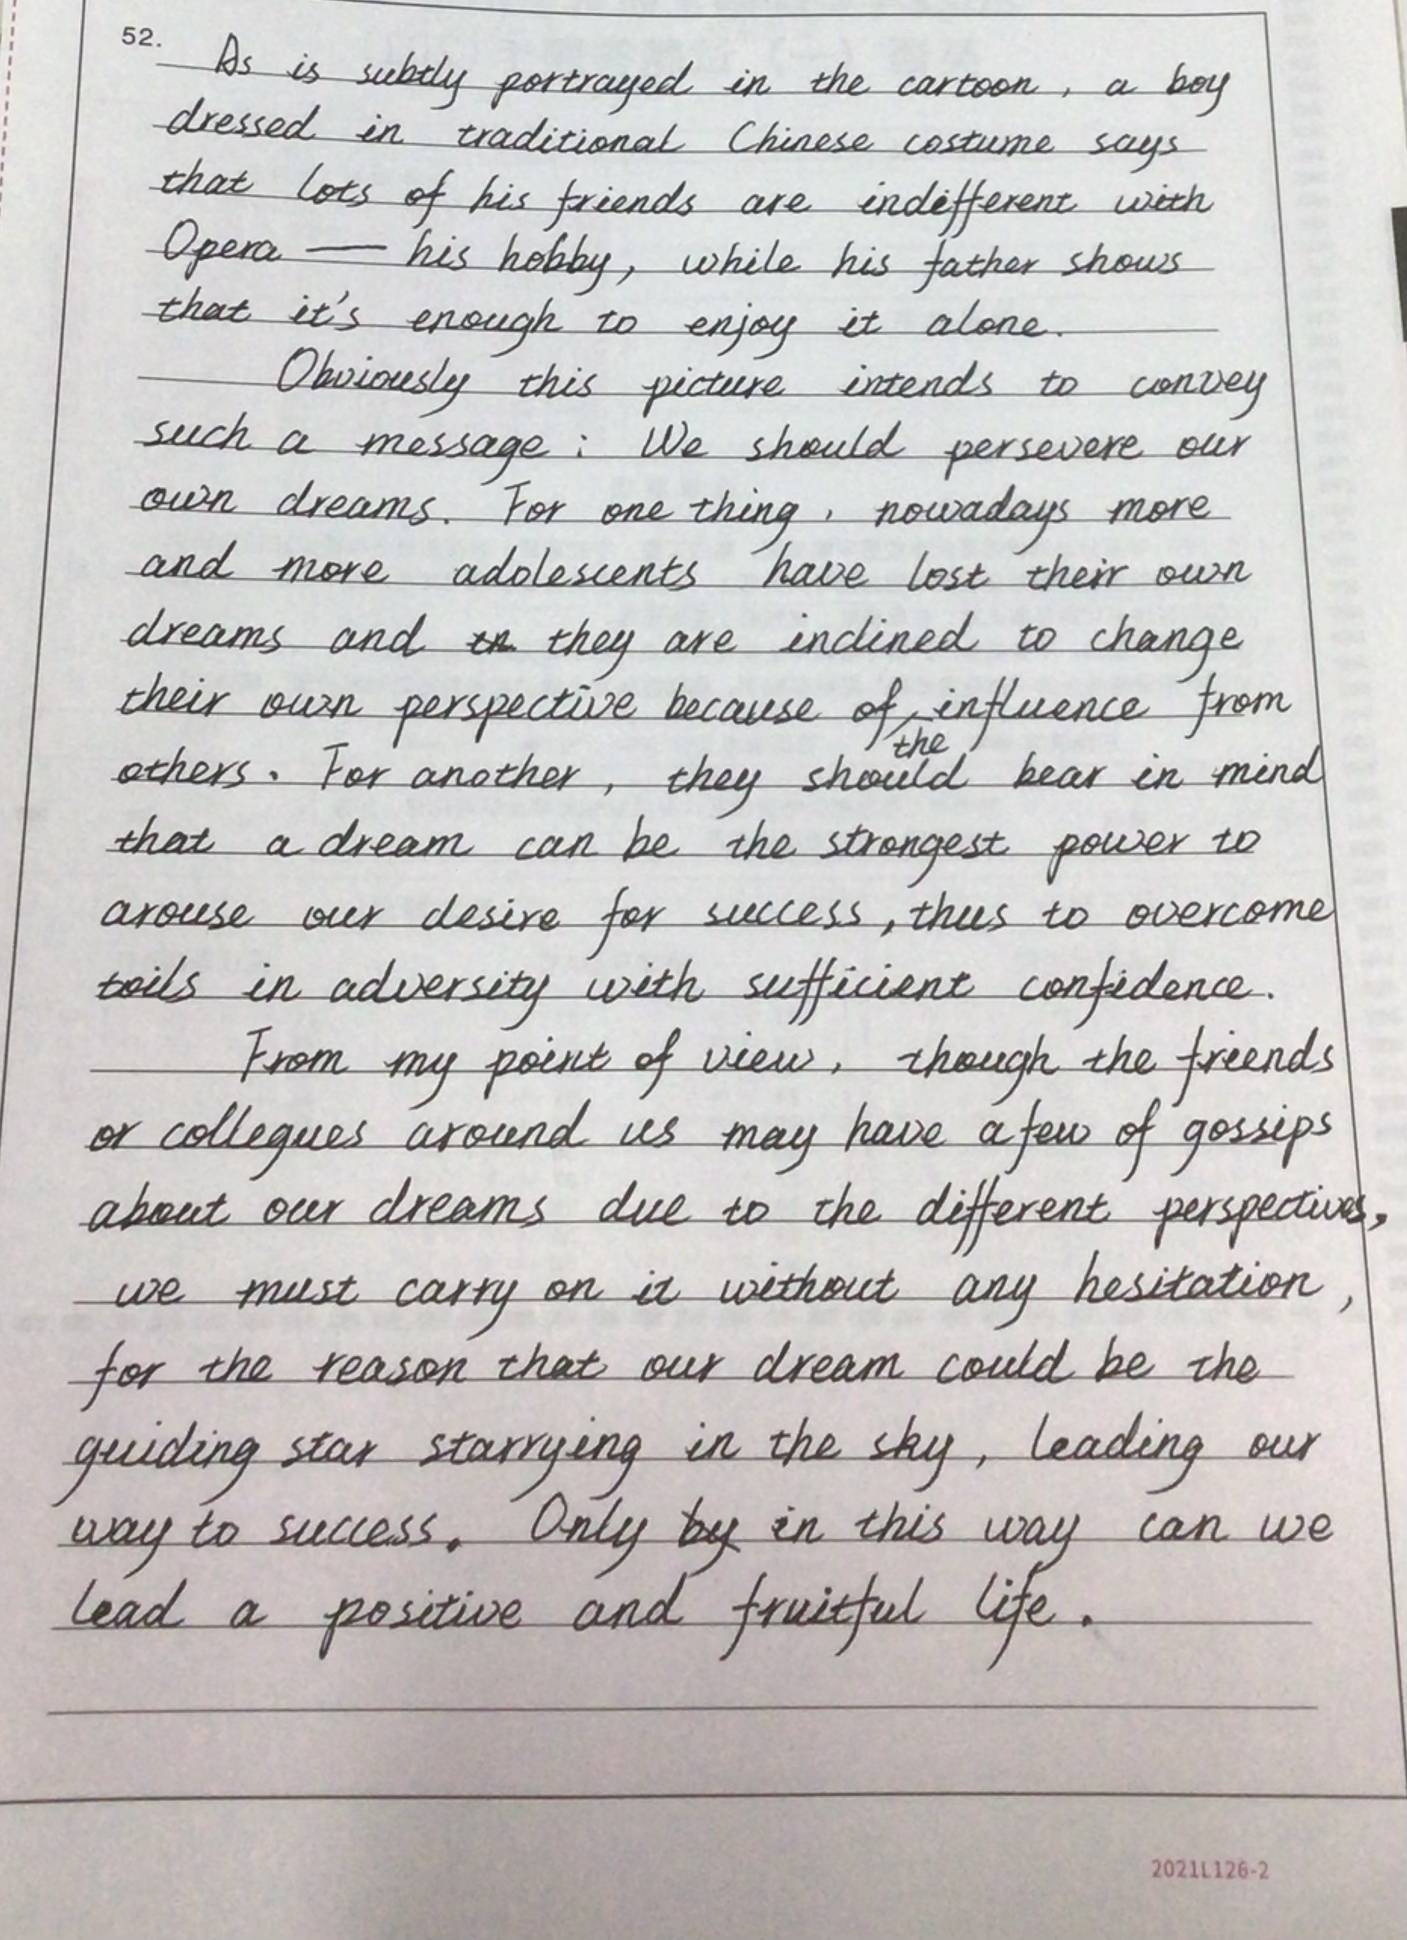 52.
As is subtly portrayed in the cartoon, a boy
dressed in traditional Chinese costume says
that lots of his friends are indifferent with
Opera — his hobby, while his father shows
that it's enough to enjoy it alone.
Obviously this picture intends to convey
such a message: We should persevere our
own dreams. For one thing, nowadays more
and more adolescents have lost their own
dreams and they are inclined to change
their own perspective because of the influence from
others. For another, they should bear in mind
that a dream can be the strongest power to
arouse our desire for success, thus to overcome
toils in adversity with sufficient confidence.
From my point of view, though the friends
or collegues around us may have a few of gossips
about our dreams due to the different perspectives,
we must carry on it without any hesitation,
for the reason that our dream could be the
guiding star starrying in the sky, leading our
way to success. Only by in this way can we
lead a positive and fruitful life.
2021L126-2